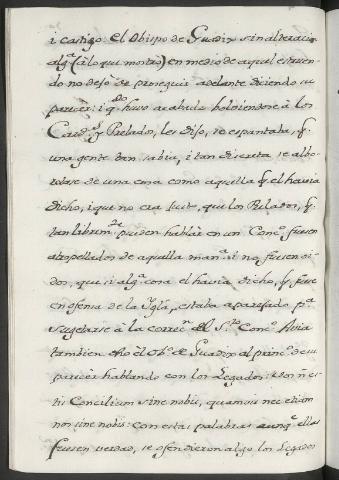 i castigo. El Obispo de Guadix sin alteracion
alg.ª (a lo que mostro) en medio de aquel estruen-
do no dejó de proseguir adelante diciendo su
parecer: i q.do huvo acabado bolviendose à los
Card.s y Prelados, les dijo, se espantaba, q.
una gente tan sabia, i tan discreta se albo-
rotase de una cosa como aquella q. el havia
dicho, i que no era justo, que los Prelados, q.
tan librem.te pueden hablar en un Conc.º fuesen
atropellados de aquella man.ª i no fuesen oi-
dos, que si alg.ª cosa el havia dicho, q. fuese
en ofensa de la Ygl.ª, estaba aparejado p.ª
sugetarse à la correc.n del S.to Conc.º Avia
tambien dho el Ob.º de Guadix al princ.º de su
parecer hablando con los Legados: Vos n̄ es-
tis Concilium sine nobis, quamvis nec etiam
nos sine vobis: con estas palabras aunq.e ellas
fuesen verdad, se ofendieron algo los Legados